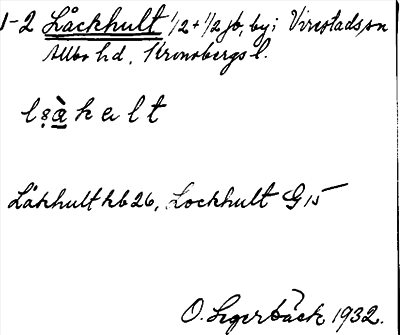 1-2 Låckhult 1/2 + 1/2 jb, by i Virestads sn
Allbo hd, Kronobergs l.
Låkhult kb 26, Lockhult G 15
O. Segerbäck 1932.